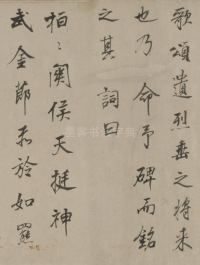 歌頌遺烈垂之將来
也乃 命予碑而銘
之其詞曰
桓〻侯天挺神
武金節如羆